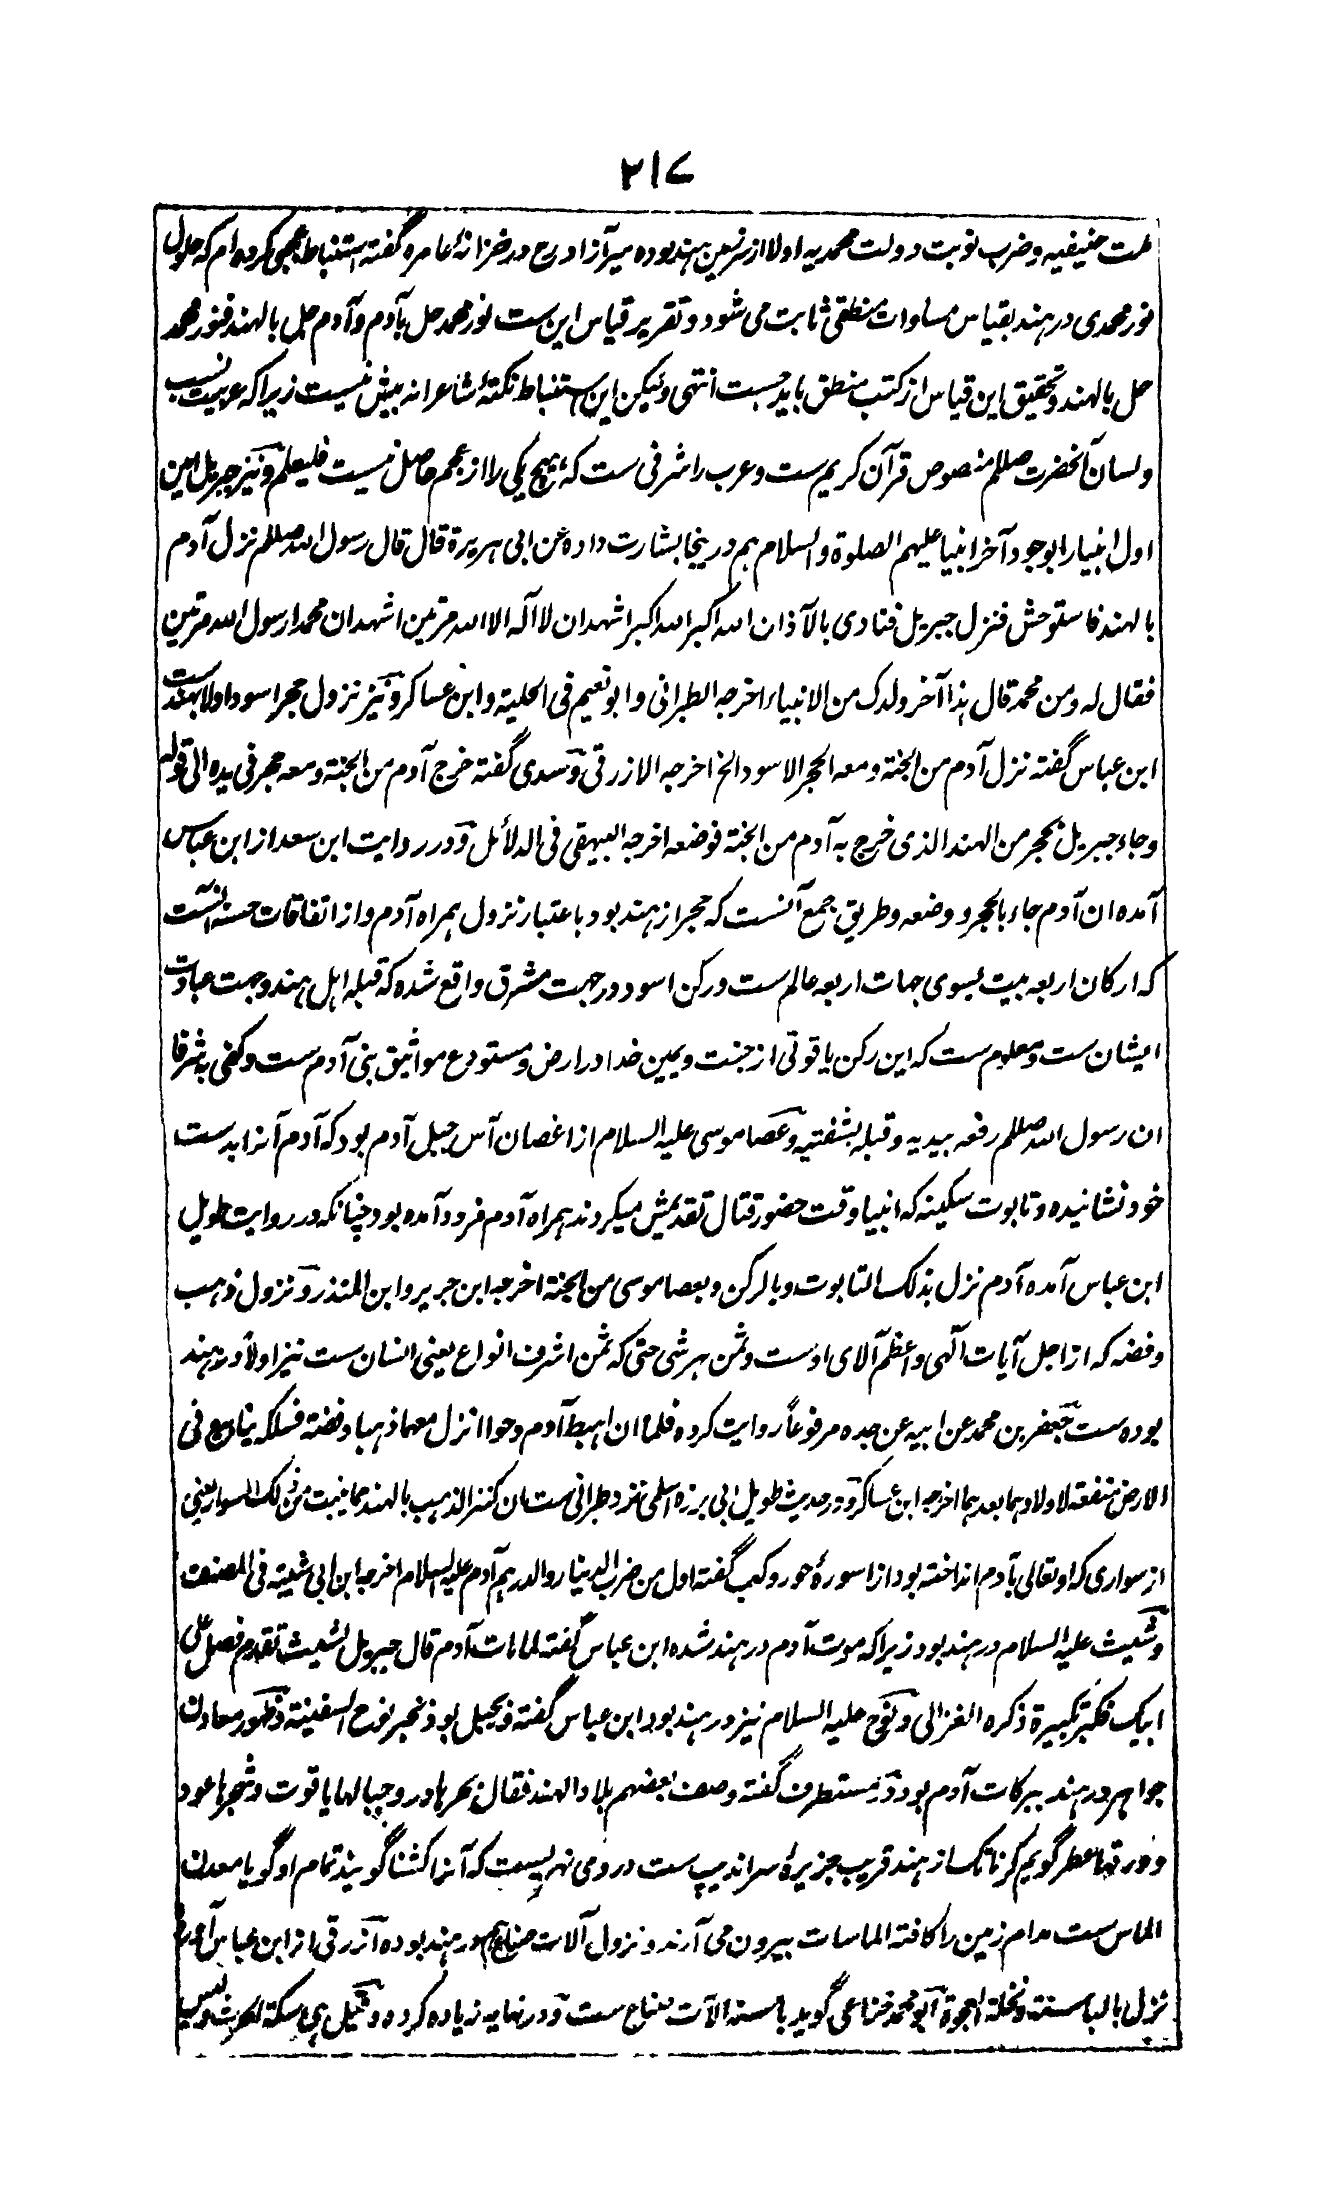 ۲۱۷
ملت حنیفیه و ضرب نوبت دولت محمدیه اولا از سرزمین هند بوده میر آزاد رح در خزانهٔ عامره گفته استنباط عجبی کرده‌ام که حلول
نور محمدی در هند بقیاس مساوات منطقی ثابت می شود و تقریر قیاس این ست نور محمد حل بآدم و آدم حل بالهند فنور محمد
حل بالهند و تحقیق این قیاس از کتب منطق باید جست انتهی ولیکن این استنباط نکتهٔ شاعرانه بیش نیست زیرا که عربیت نسب
و لسان آنحضرت صللم منصوص قرآن کریم ست و عرب را شرفی ست که هیچ یکی را از عجم حاصل نیست فلیعلم و نیز جبریل امین
اول انبیا را بوجود آخر انبیا علیهم الصلوة والسلام هم درینجا بشارت داده عن ابی هریرة قال قال رسول الله صللم نزل آدم
بالهند فاستوحش فنزل جبریل فنادی بالآذان الله اکبر الله اکبر اشهد ان لا اله الا الله مرتین اشهد ان محمدا رسول الله مرتین
فقال له ومن محمد قال هذا آخر ولدک من الانبیاء اخرجه الطبرانی و ابو نعیم فی الحلیة و ابن عساکر و نیز نزول حجر اسود اولا بهند ست
ابن عباس گفته نزل آدم من الجنة ومعه الحجر الاسود الخ اخرجه الازرقی و سدی گفته خرج آدم من الجنة ومعه حجر فی یده الی قوله
وجاء جبریل بحجر من الهند الذی خرج به آدم من الجنة فوضعه اخرجه البیهقی فی الدلائل و در روایت ابن سعد از ابن عباس
آمده ان آدم جاء بالحجر و وضعه و طریق جمع آنست که حجر از هند بود باعتبار نزول همراه آدم و از اتفاقات حسنه آنست
که ارکان اربعه بیت بسوی جهات اربعه عالم ست و رکن اسود در جهت مشرق واقع شده که قبله اهل هند و جهت عبادت
ایشان ست و معلوم ست که این رکن یاقوتی از جنت و یمین خدا در ارض و مستودع مواثیق بنی آدم ست وکفی به شرفا
ان رسول الله صللم رفعه بیدیه و قبله بشفتیه و عصا موسی علیه السلام از اغصان آس جبل آدم بود که آدم آنرا بدست
خود نشانیده و تابوت سکینه که انبیا وقت حضور قتال تقدیمش میکردند همراه آدم فرود آمده بود چنانکه در روایت طویل
ابن عباس آمده آدم نزل بذلک التابوت وبالرکن وبعصا موسی من الجنة اخرجه ابن جریر و ابن المنذر و نزول ذهب
و فضه که از اجل آیات الٓهی و اعظم آلای اوست و ثمن هر شی حتی که ثمن اشرف انواع یعنی انسان ست نیز اولاً در هند
بوده ست جعفر بن محمد عن ابیه عن جده مرفوعاً روایت کرده فلما ان اهبط آدم و حوا انزل معهما ذهبا وفضة فسلکه ینابیع فی
الارض منفعة لاولادهما بعدهما اخرجه ابن عساکر و در حدیث طویل ابی برزه اسلمی نزد طبرانی ست ان کنز الذهب بالهند مما ینبت من ذلک السوار یعنی
از سواری که او تعالی بآدم انداخته بود از اسورهٔ حور و کعب گفته اول من ضرب الدینار والدرهم آدم علیه السلام اخرجه ابن ابی شیبة فی المصنف
و شیث علیه السلام در هند بود زیرا که موت آدم در هند شده ابن عباس گفته لما مات آدم قال جبریل لشیث تقدم فصل علی
ابیک فکبر تکبیرة ذکره الغزالی و نوح علیه السلام نیز در هند بود ابن عباس گفته وبجبل بوذ نجر نوح السفینة و ظهور معادن
جواهر در هند ببرکات آدم بود در مستطرف گفته وصف بعضهم بلاد الهند فقال بحرها در وجبالها یاقوت وشجرها عود
و ورقها عطر گویم کرناتک از هند قریب جزیرهٔ سراندیپ ست در وی نهریست که آنرا کشنا گویند تمام او گویا معدن
الماس ست مدام زمین را کافته الماسات بیرون می آرند و نزول آلات صنایع هم در هند بوده ازرقی از ابن عباس آورده
نزل بالباسنة ونخلة العجوة ابو محمد خزاعی گوید باسنه آلات صناع ست و در نهایه زیاده کرده وقیل هی سکة الحرث ولیس